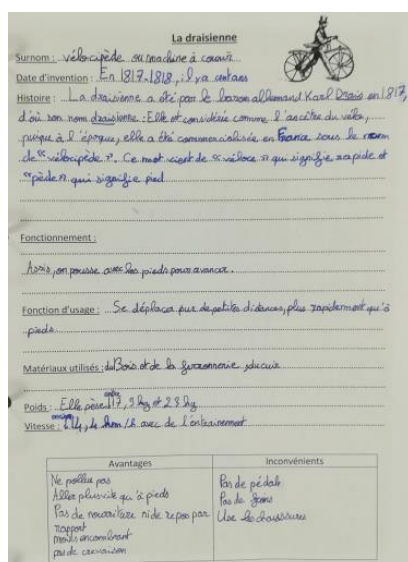 La draisienne
Surnom : vélocipède ou machine à courir
Date d'invention : En 1817-1818, il y a cent ans
Histoire : La draisienne a été par le baron allemand Karl Drais en 1817,
d'où son nom draisienne : Elle est considérée comme l'ancêtre du vélo,
puique à l'époque, elle a été commercialisée en France sous le nom
de "vélocipède". Ce mot vient de "véloce" qui signifie rapide et
"pède" qui signifie pied
Fonctionnement :
Assis, on pousse avec les pieds pour avancer.
Fonction d'usage : Se déplacer sur de petites distances, plus rapidement qu'à
pieds
Matériaux utilisés : du Bois et de la ferronnerie, du cuir
Poids : Elle pèse entre 17,9 kg et 23 kg
Vitesse : 14,4 km/h avec de l'entrainement
Avantages
Inconvénients
Ne pollue pas
Pas de pédale
Aller plus vite qu'à pieds
Pas de freins
Pas de nourriture ni de repos par
Use les chaussures
rapport
moins encombrant
pas de crevaison